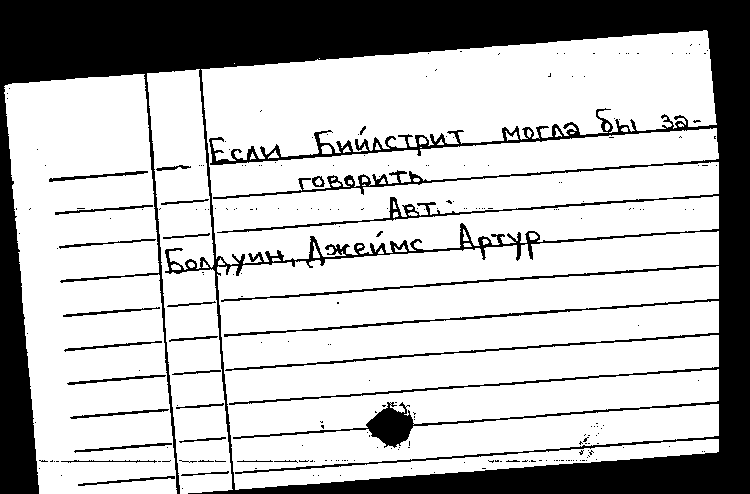 Если Бийлстрит могла бы за-
говорить
Авт.:
Болдуин, Джеймс Артур